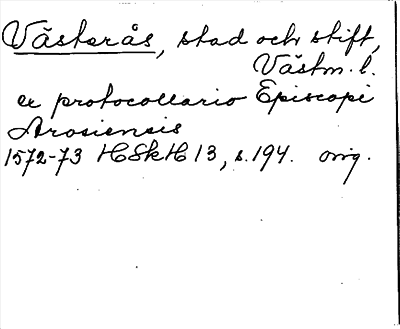 Västerås, stad och stift,
Västm. l.
ex protocollario Episcopi
Arosiensis
1572-73 HSkH 13, s. 194. orig.